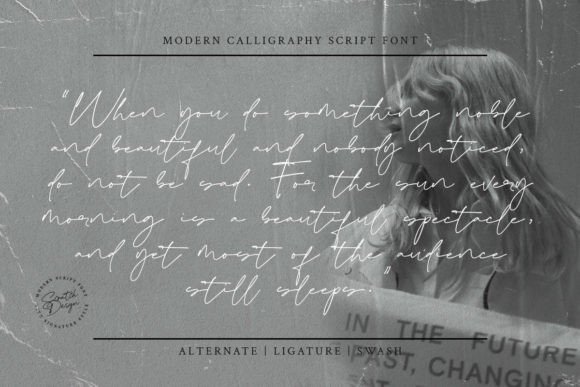 MODERN CALLIGRAPHY SCRIPT FONT
"When you do something noble
and beautiful and nobody noticed,
do not be sad. For the sun every
morning is a beautiful spectacle,
and yet most of the audience
still sleeps."
MODERN SCRIPT FONT
Scratch
Design
SIGNATURE STYLE
IN THE FUTURE
PAST, CHANGING
ALTERNATE | LIGATURE | SWASH